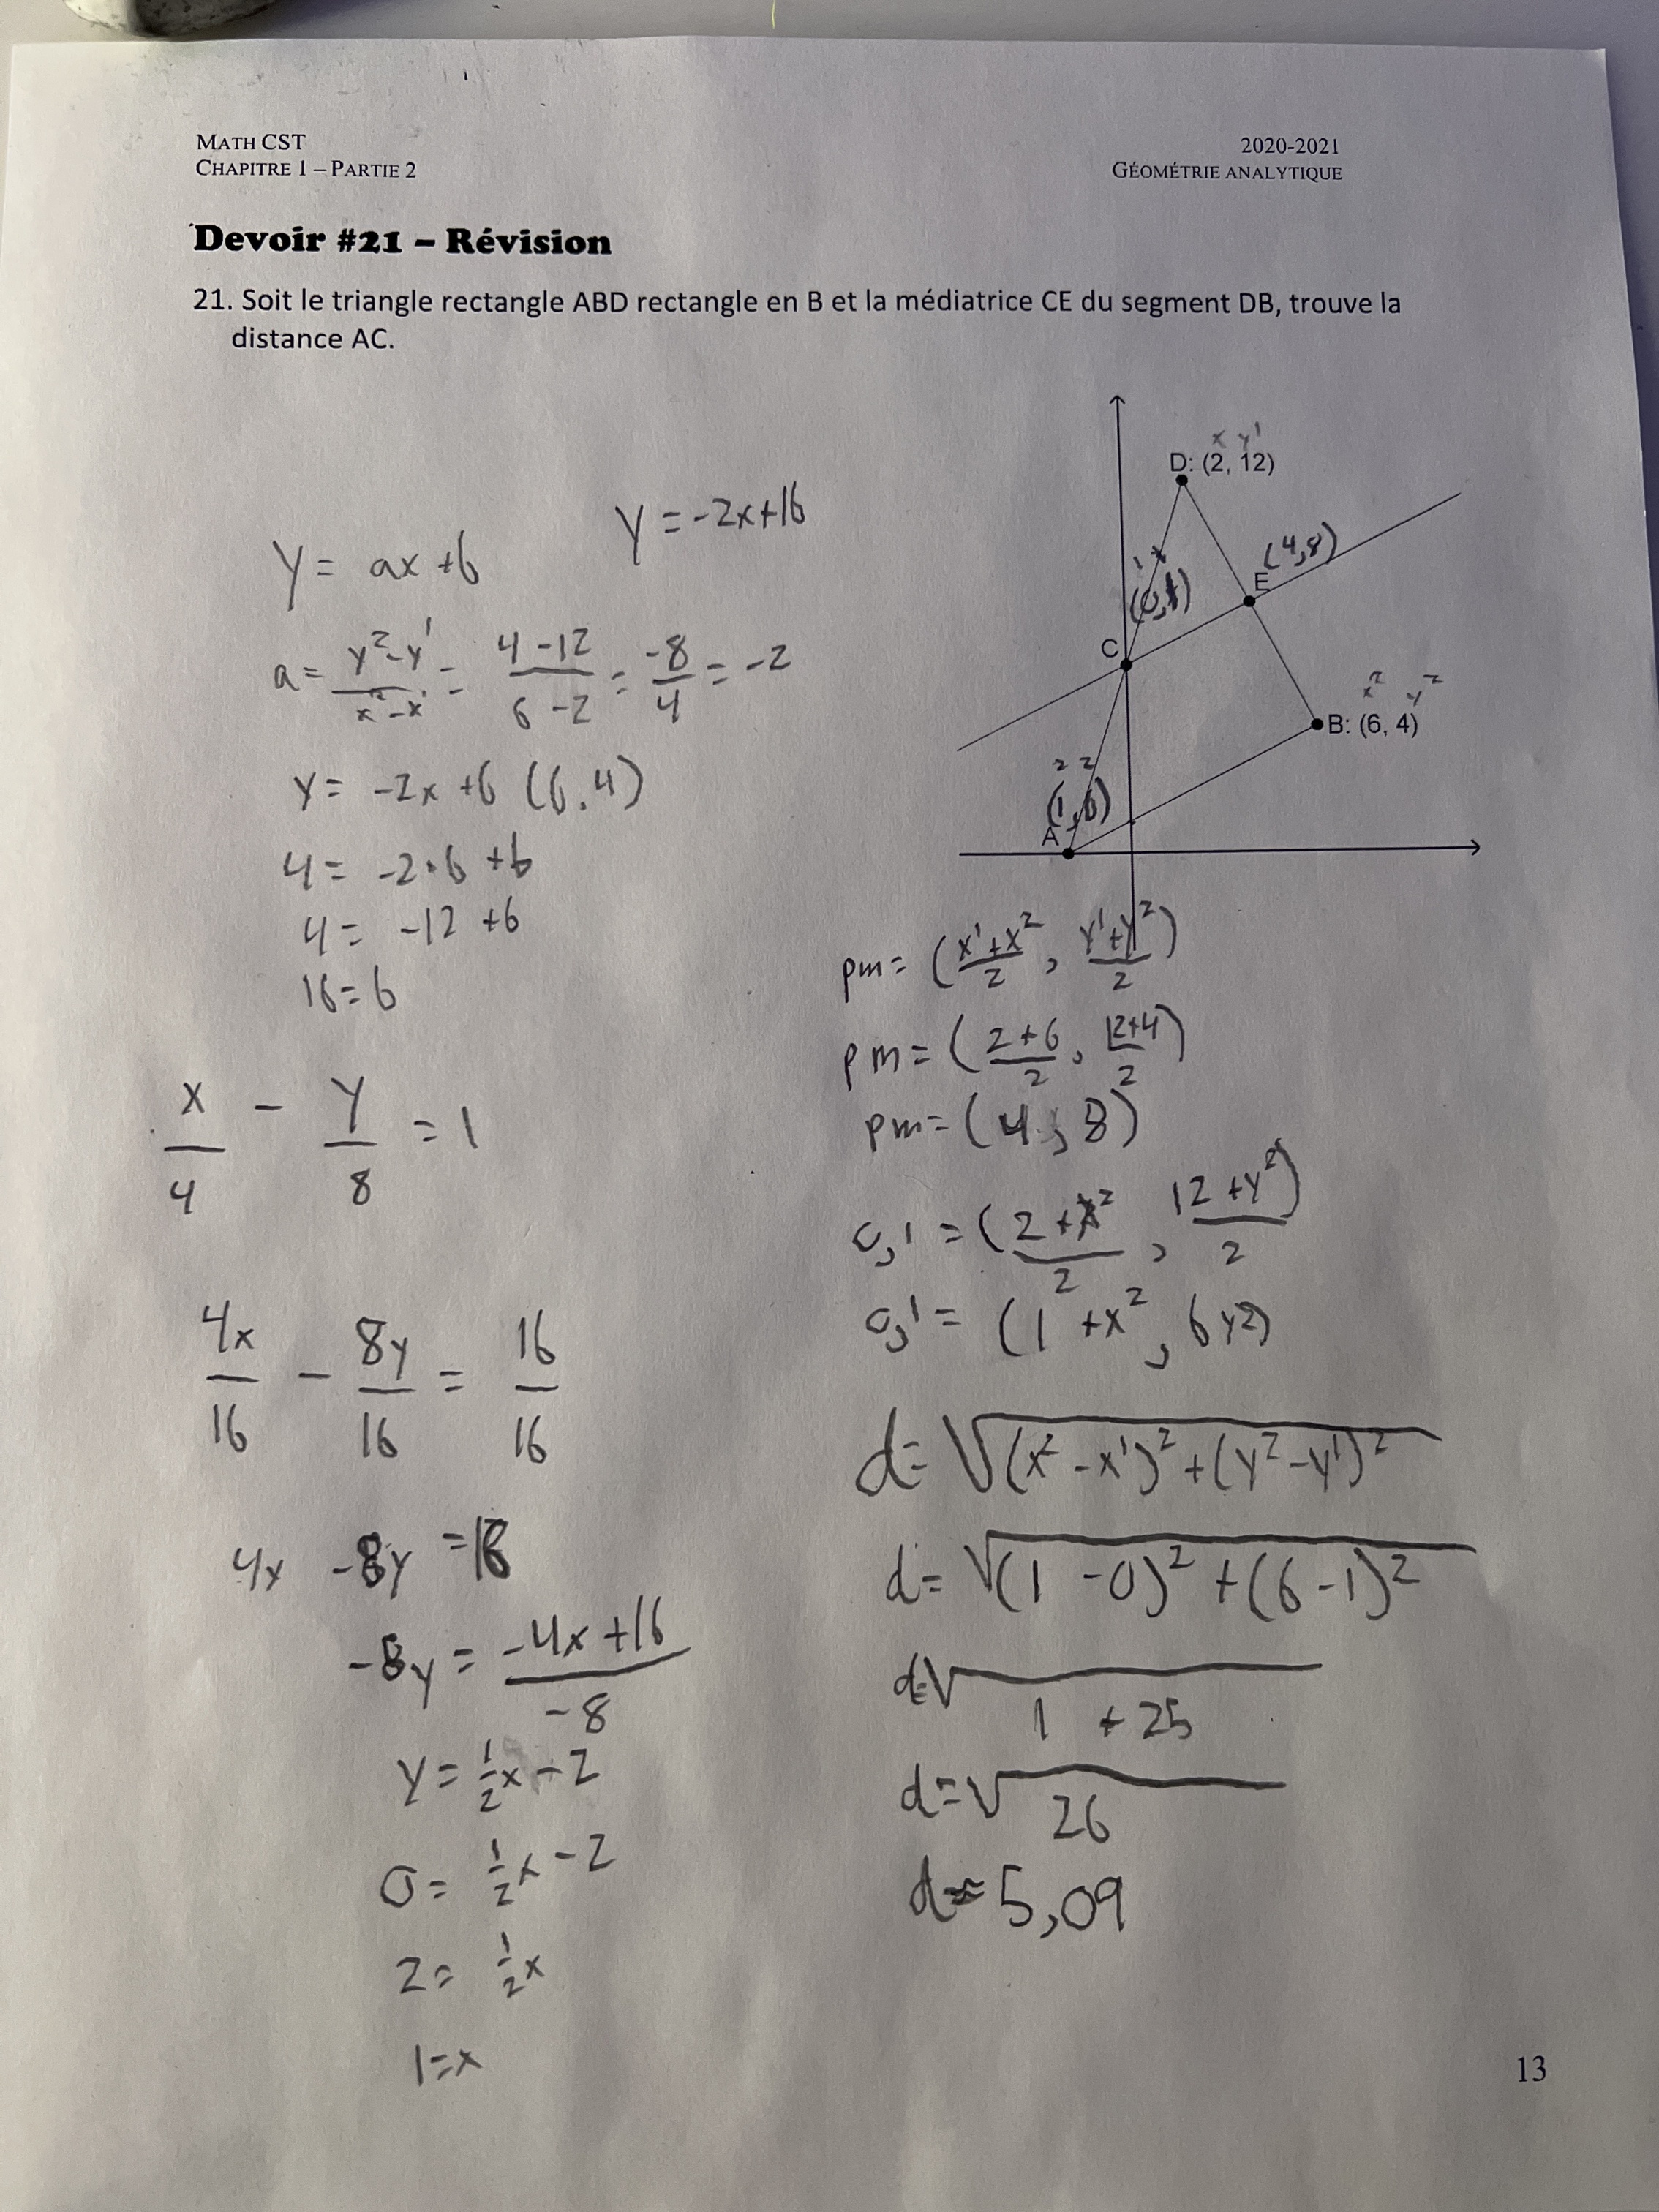 MATH CST
CHAPITRE 1 – PARTIE 2
2020-2021
GÉOMÉTRIE ANALYTIQUE
Devoir #21 – Révision
21. Soit le triangle rectangle ABD rectangle en B et la médiatrice CE du segment DB, trouve la
distance AC.
x y¹
D: (2, 12)
(4,8)
E
C
x² y²
B: (6, 4)
2 2
(1,6)
A
y = ax + b
y = -2x+16
a = y²-y¹ / x²-x¹ = 4-12 / 6-2 = -8/4 = -2
y = -2x + b (6,4)
4 = -2·6 + b
4 = -12 + b
16 = b
x/4 - y/8 = 1
4x/16 - 8y/16 = 16/16
4x - 8y = 16
-8y = -4x+16 / -8
y = 1/2x - 2
0 = 1/2x - 2
2 = 1/2x
1 = x
pm = (x¹+x²/2, y¹+y²/2)
pm = (2+6/2, 12+4/2)
pm = (4, 8)
0,1 = (2+x²/2, 12+y²/2)
0,1 = (1+x², 6y2)
d = √(x²-x¹)²+(y²-y¹)²
d = √(1-0)²+(6-1)²
d = √1 + 25
d = √26
d = 5,09
13